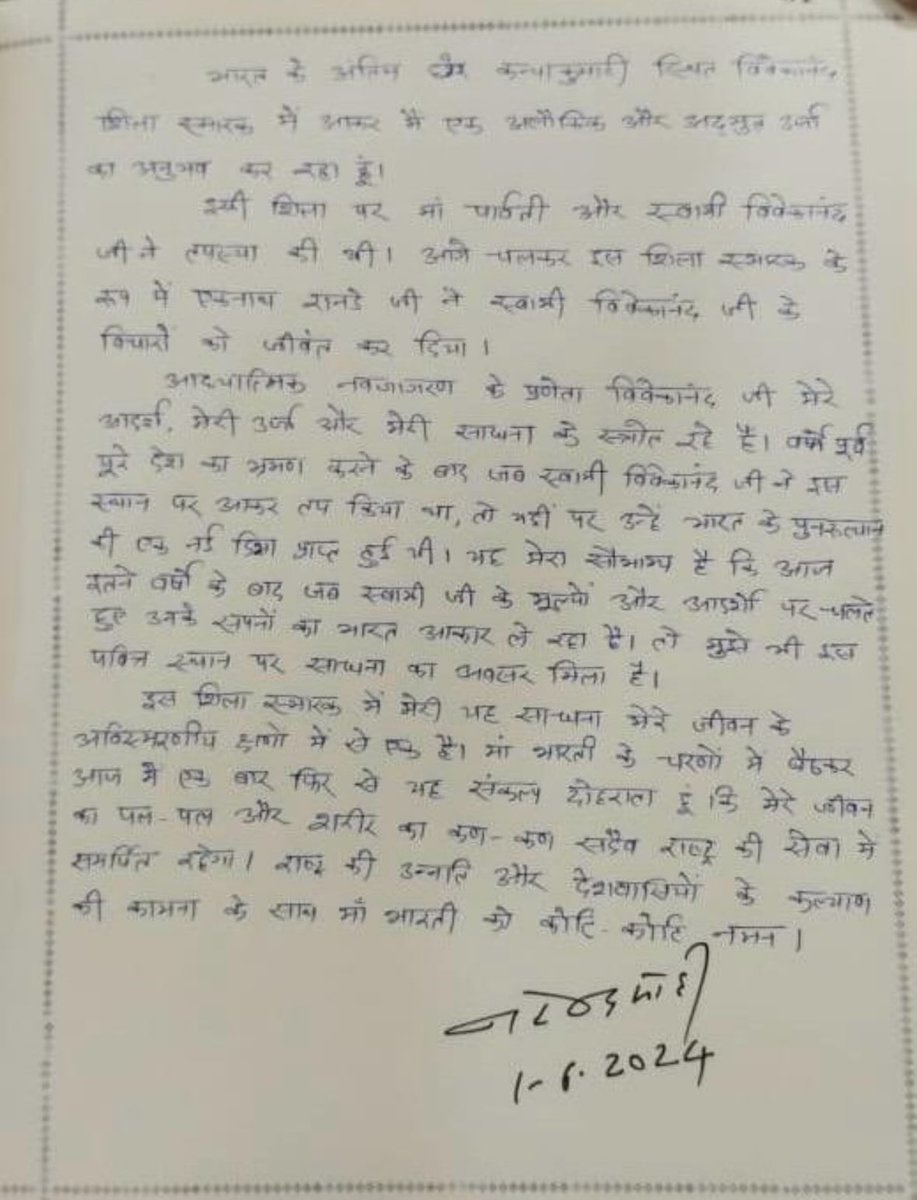 भारत के अंतिम छोर कन्याकुमारी स्थित विवेकानंद
शिला स्मारक में आकर मैं एक अलौकिक और अद्भुत उर्जा
का अनुभव कर रहा हूं।
इसी शिला पर मां पार्वती और स्वामी विवेकानंद
जी ने तपस्या की थी। आगे चलकर इस शिला स्मारक के
रूप में एकनाथ रानडे जी ने स्वामी विवेकानंद जी के
विचारों को जीवंत कर दिया।
आध्यात्मिक नवजागरण के प्रणेता विवेकानंद जी मेरे
आदर्श, मेरी उर्जा और मेरी साधना के स्त्रोत रहे है। वर्षों पूर्व
पूरे देश का भ्रमण करने के बाद जब स्वामी विवेकानंद जी ने इस
स्थान पर आकर तप किया था, तो यहीं पर उन्हें भारत के पुनरूत्थान
की एक नई दिशा प्राप्त हुई थी। यह मेरा सौभाग्य है कि आज
इतने वर्षों के बाद जब स्वामी जी के मूल्यों और आदर्शों पर चलते
हुए उनके सपनों का भारत आकार ले रहा है। तो मुझे भी इस
पवित्र स्थान पर साधना का अवसर मिला है।
इस शिला स्मारक में मेरी यह साधना मेरे जीवन के
अविस्मरणीय क्षणों में से एक है। मां भारती के चरणों में बैठकर
आज मैं एक बार फिर से यह संकल्प दोहराता हूं कि मेरे जीवन
का पल-पल और शरीर का कण-कण सदैव राष्ट्र की सेवा में
समर्पित रहेगा। राष्ट्र की उन्नति और देशवासियों के कल्याण
की कामना के साथ मां भारती को कोटि-कोटि नमन।
नरेन्द्र मोदी
1-6.2024